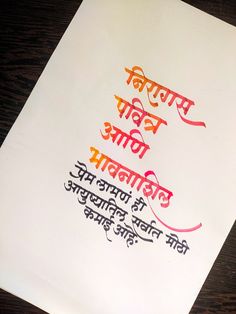 निरागस
पवित्र
आणि
भावनाशिल
प्रेम लाभणं ही
आयुष्यातिल सर्वात मोठी
कमाई आहे.